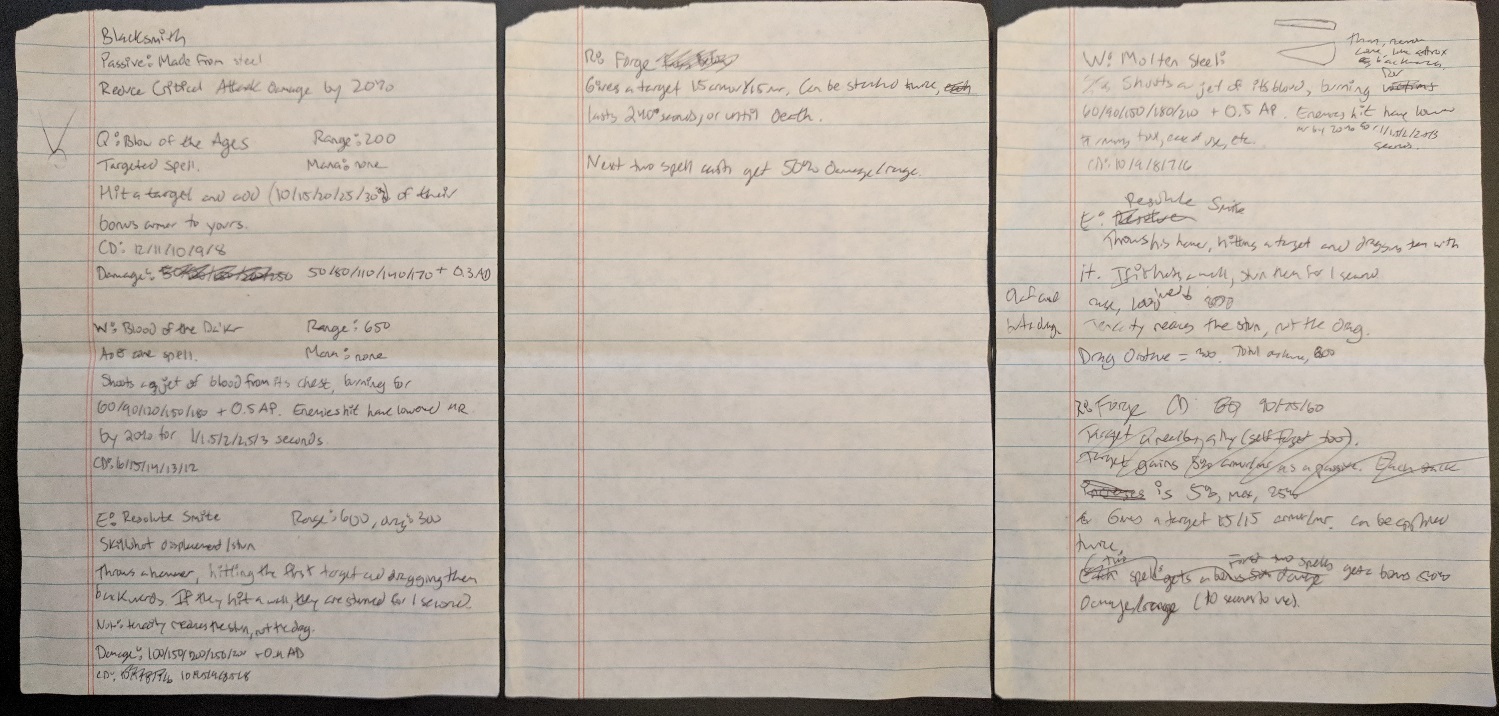 Blacksmith
Passive: Made From steel
Reduce Critical Attack Damage by 20%
Q: Blow of the Ages Range: 200
Targeted spell. Mana: none
Hit a target and add (10/15/20/25/30%) of their
bonus armor to yours.
CD: 12/11/10/9/8
Damage: 50/80/110/140/170 + 0.3 AD
W: Blood of the Range: 650
AoE cone spell. Mana: none
Shoots a jet of blood from its chest, burning for
60/90/120/150/180 + 0.5 AP. Enemies hit have lowered MR
by 20% for 1/1.5/2/2.5/3 seconds.
CD: 16/15/14/13/12
E: Resolute Smite Range: 600, drag: 300
Skillshot displacement/stun
Throws a hammer, hitting the first target and dragging them
backwards. If they hit a wall, they are stunned for 1 second.
Note: tenacity reduces the stun, not the drag.
Damage: 100/150/200/250/ + AD
CD:
R: Forge
Gives a target 15 armor/15 mr, Can be stacked twice,
lasts 240 seconds, or until Death.
Next two spell casts get 50% Damage/range.
W: Molten Steel:
Shoots a jet of its blood, burning for
60/90/150/180/210 + 0.5 AP. Enemies hit have lower
mr by 20% for 1/1.5/2/2.5/3
seconds.
CD: 10/9/8/7/6
E: Resolute Smite
Throws his hammer, hitting a target and dragging them with
it. If it hits a wall, stun them for 1 second
Tenacity reduces the stun, not the drag.
Drag Distance = 300. Total distance, 800
R: Forge CD 90/75/60
Target a nearby ally (self target too).
Target gains 5% armor/mr as a passive. Each stack
is 5%, max, 25%
Gives a target 15/15 armor/mr. can be applied
twice,
First two spells
spell gets a bonus damage gets a bonus 50%
Damage/range (10 seconds to use).